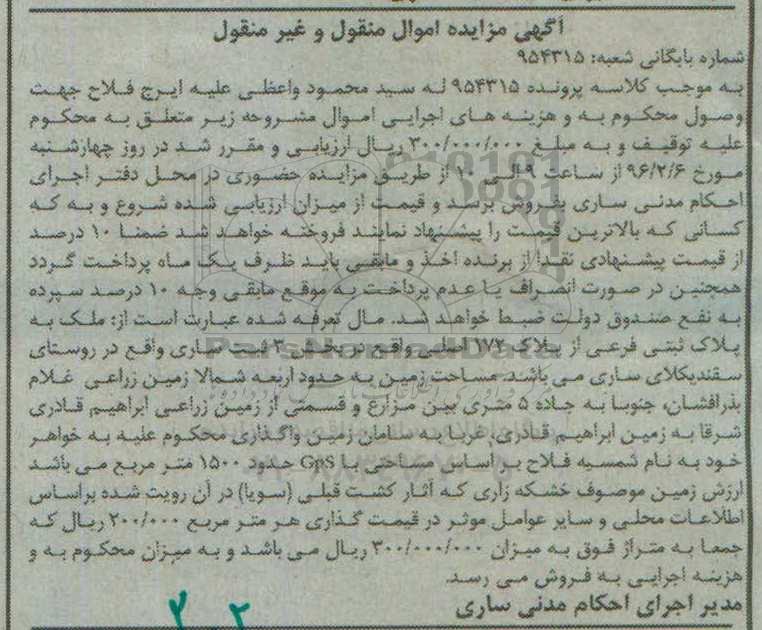 آگهی مزایده اموال منقول و غیر منقول
شماره بایگانی شعبه: ۹۵۴۳۱۵
به موجب کلاسه پرونده ۹۵۴۳۱۵ له سید محمود واعظی علیه ایرج فلاح جهت
وصول محکوم به و هزینه های اجرایی اموال مشروحه زیر متعلق به محکوم
علیه توقیف و به مبلغ ۳۰۰/۰۰۰/۰۰۰ ریال ارزیابی و مقرر شد در روز چهارشنبه
مورخ ۹۶/۲/۶ از ساعت ۹ الی ۱۰ از طریق مزایده حضوری در محل دفتر اجرای
احکام مدنی ساری بفروش برسد و قیمت از میزان ارزیابی شده شروع و به که
کسانی که بالاترین قیمت را پیشنهاد نمایند فروخته خواهد شد ضمنا ۱۰ درصد
از قیمت پیشنهادی نقدا از برنده اخذ و مابقی باید ظرف یک ماه پرداخت گردد
همچنین در صورت انصراف یا عدم پرداخت به موقع مابقی وجه ۱۰ درصد سپرده
به نفع صندوق دولت ضبط خواهد شد. مال تعرفه شده عبارت است از: ملک به
پلاک ثبتی فرعی از پلاک ۱۷۲ اصلی واقع در بخش ۳ ثبت ساری واقع در روستای
سقندیکلای ساری می باشد. مساحت زمین به حدود اربعه شمالا زمین زراعی غلام
بذرافشان، جنوبا به جاده ۵ متری بین مزارع و قسمتی از زمین زراعی ابراهیم قادری
شرقا به زمین ابراهیم قادری، غربا به سامان زمین واگذاری محکوم علیه به خواهر
خود به نام شمسیه فلاح بر اساس مساحتی با Gps حدود ۱۵۰۰ متر مربع می باشد
ارزش زمین موصوف خشکه زاری که آثار کشت قبلی (سویا) در آن رویت شده براساس
اطلاعات محلی و سایر عوامل موثر در قیمت گذاری هر متر مربع ۲۰۰/۰۰۰ ریال که
جمعا به متراژ فوق به میزان ۳۰۰/۰۰۰/۰۰۰ ریال می باشد و به میزان محکوم به و
هزینه اجرایی به فروش می رسد.
مدیر اجرای احکام مدنی ساری
۲ ۳
ParsNamadData